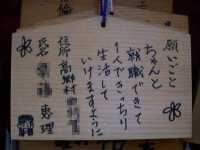 願いごと
ちゃんと
就職できて
1人できっちり
生活して
いけますように
住所 高野村
氏名 恵理